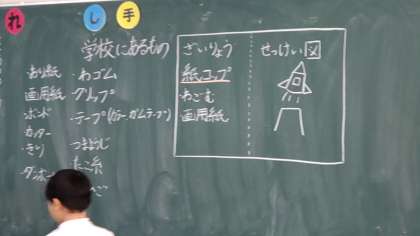 れ し 手
学校にあるもの
おり紙
画用紙
ボンド
カッター
きり
・わゴム
・クリップ
・テープ(カラー、ガムテープ)
つまようじ
たこ糸
ざいりょう
紙コップ
・わごむ
画用紙
せっけい図